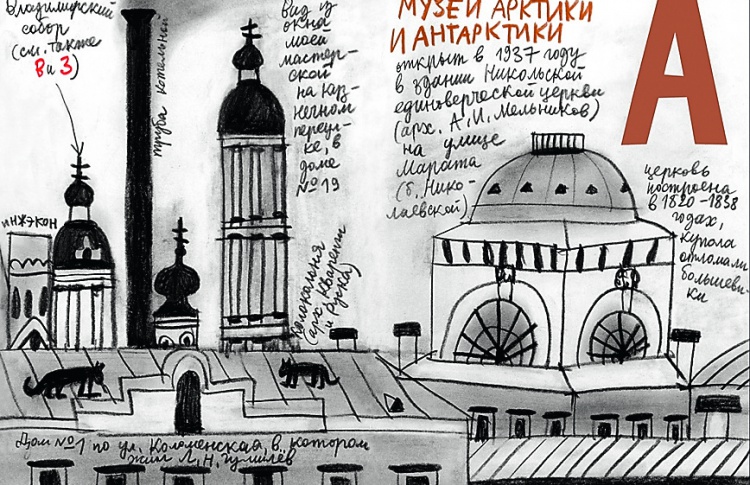 Владимирский
собор
(см. также
В и З)
труба котельной
Вид из
окна
моей
мастер-
ской
на куз-
нечном
переул-
ке, в
доме
№ 19
МУЗЕЙ АРКТИКИ
И АНТАРКТИКИ
открыт в 1937 году
в здании Никольской
единоверческой церкви
(арх. А. И. Мельников)
на улице
Марата
(б. Нико-
лаевской)
А
церковь
построена
в 1820-1838
годах,
купола
отломали
большеви-
ки
инжэкон
колокольня
(арх. Кваренги
и Руска)
Дом № 1 по ул. Коломенская, в котором
жил Л. Н. Гумилев